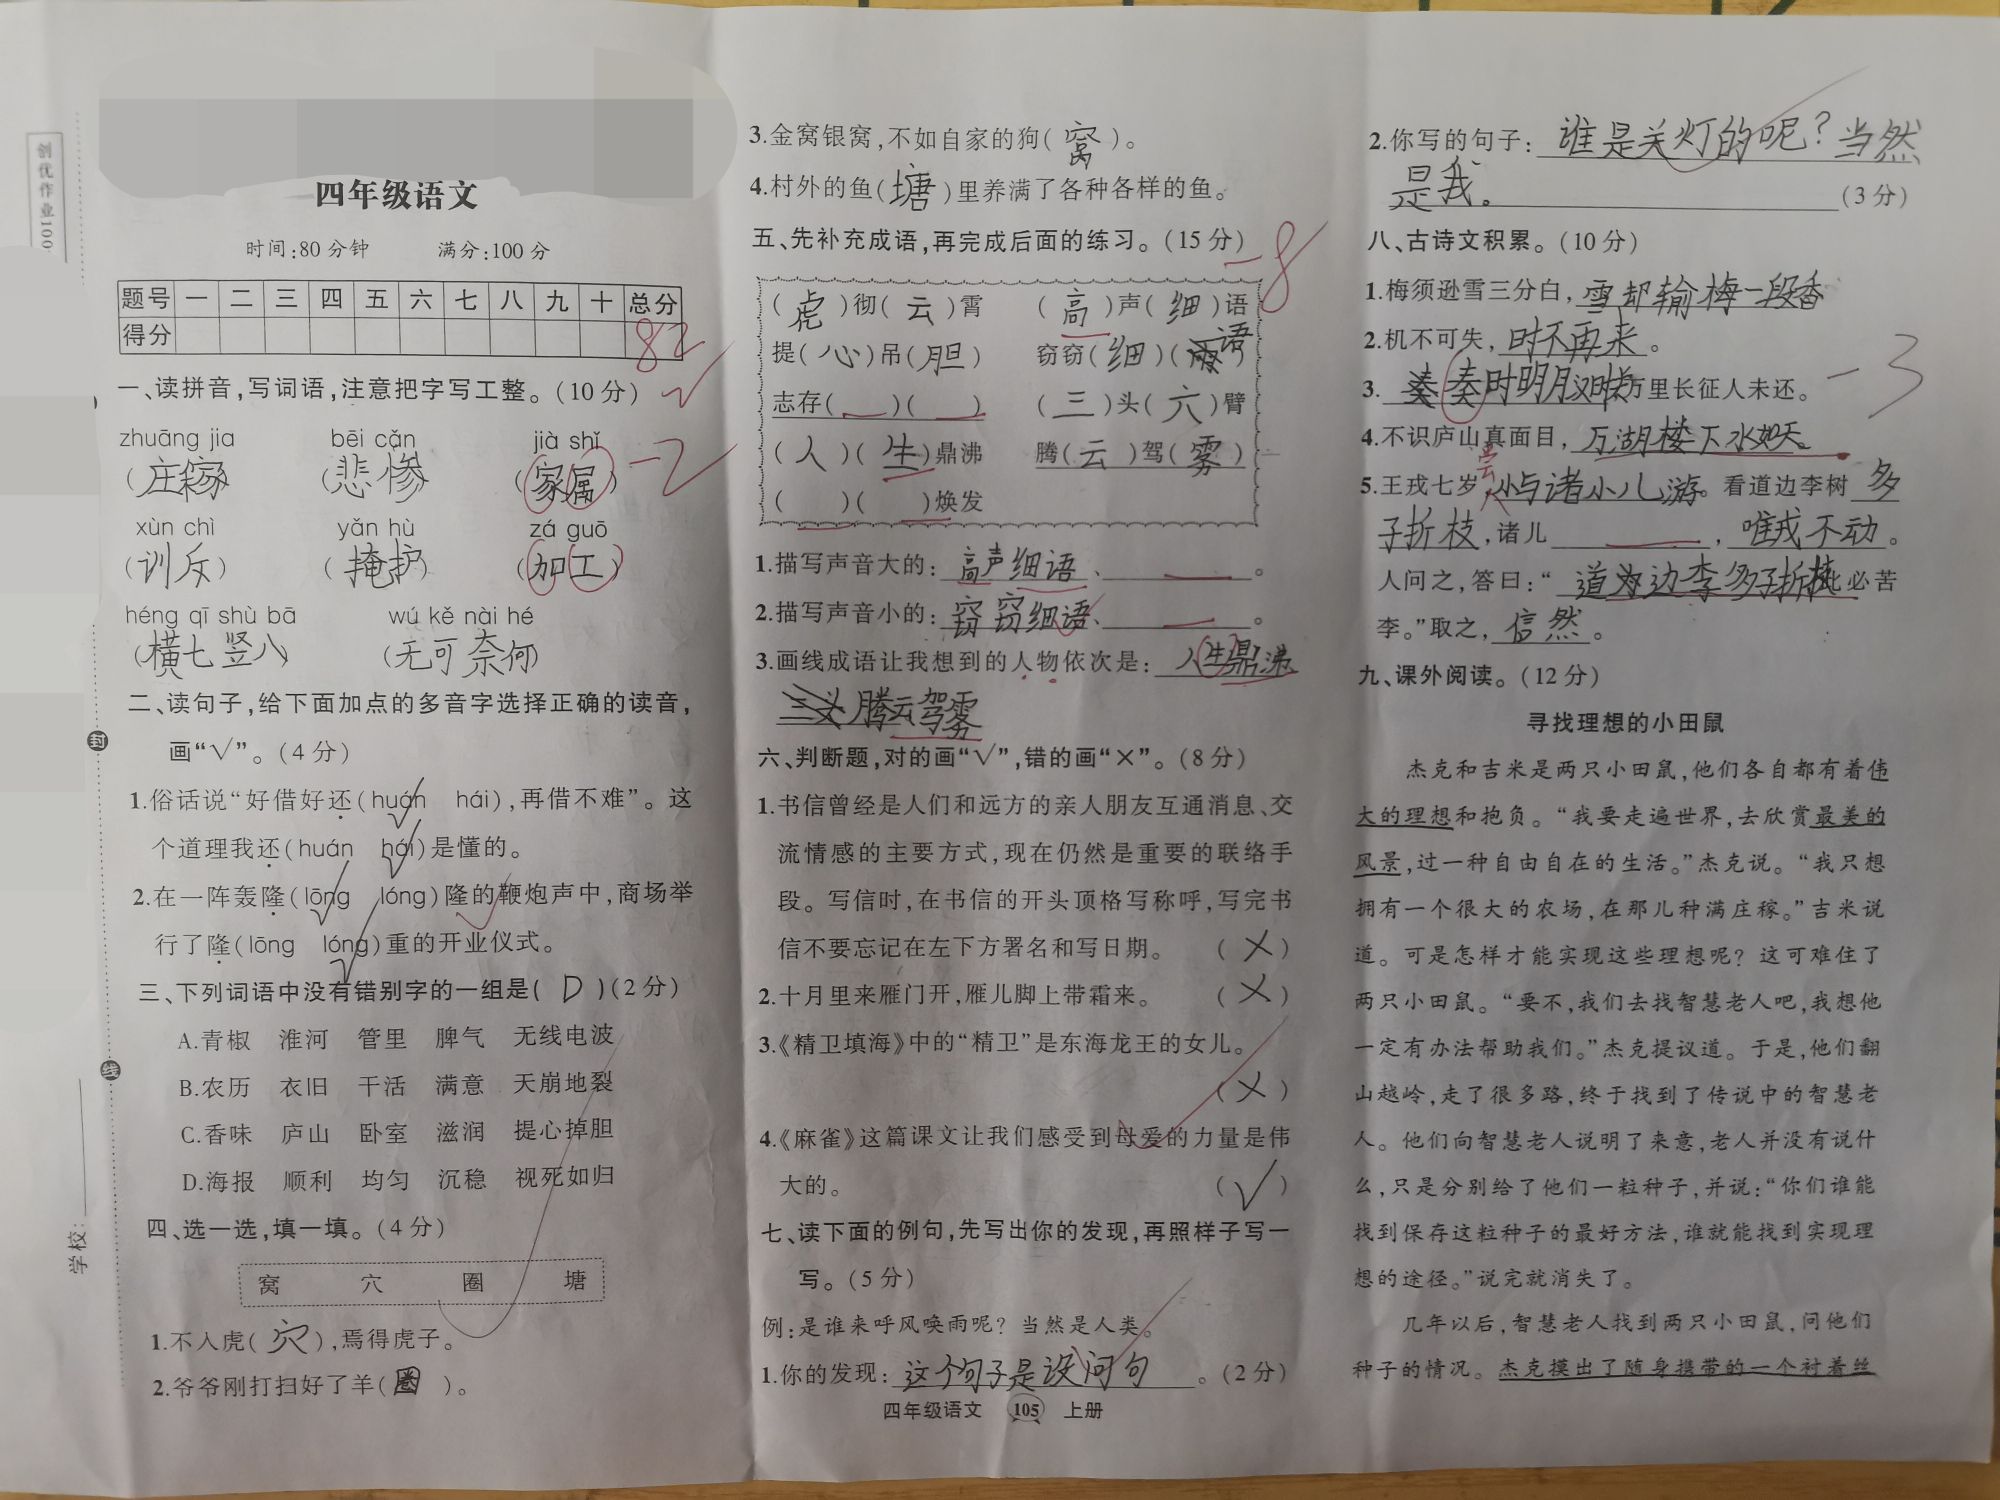 创优作业100
学校:
封
线
四年级语文
时间:80分钟 满分:100分
题号 一 二 三 四 五 六 七 八 九 十 总分
得分 82
一、读拼音,写词语,注意把字写工整。(10分)
zhuāng jia bēi cǎn jià shǐ
(庄稼) (悲惨) (家属) -2
xùn chì yǎn hù zá guō
(训斥) (掩护) (加工)
héng qī shù bā wú kě nài hé
(横七竖八) (无可奈何)
二、读句子,给下面加点的多音字选择正确的读音,
画“√”。(4分)
1.俗话说“好借好还(huán hái),再借不难”。这
个道理我还(huán hái)是懂的。
2.在一阵轰隆(lōng lóng)隆的鞭炮声中,商场举
行了隆(lōng lóng)重的开业仪式。
三、下列词语中没有错别字的一组是( D )(2分)
A.青椒 淮河 管里 脾气 无线电波
B.农历 衣旧 干活 满意 天崩地裂
C.香味 庐山 卧室 滋润 提心掉胆
D.海报 顺利 均匀 沉稳 视死如归
四、选一选,填一填。(4分)
窝 穴 圈 塘
1.不入虎(穴),焉得虎子。
2.爷爷刚打扫好了羊(圈)。
3.金窝银窝,不如自家的狗(窝)。
4.村外的鱼(塘)里养满了各种各样的鱼。
五、先补充成语,再完成后面的练习。(15分) -8
(虎)彻(云)霄 (高)声(细)语
提(心)吊(胆) 窃窃(细)(语)
志存( )( ) (三)头(六)臂
(人)(生)鼎沸 腾(云)驾(雾)
( )( )焕发
1.描写声音大的:高声细语、 。
2.描写声音小的:窃窃细语、 。
3.画线成语让我想到的人物依次是:人生鼎沸
腾云驾雾
六、判断题,对的画“√”,错的画“×”。(8分)
1.书信曾经是人们和远方的亲人朋友互通消息、交
流情感的主要方式,现在仍然是重要的联络手
段。写信时,在书信的开头顶格写称呼,写完书
信不要忘记在左下方署名和写日期。 (×)
2.十月里来雁门开,雁儿脚上带霜来。 (×)
3.《精卫填海》中的“精卫”是东海龙王的女儿。
(×)
4.《麻雀》这篇课文让我们感受到母爱的力量是伟
大的。 (√)
七、读下面的例句,先写出你的发现,再照样子写一
写。(5分)
例:是谁来呼风唤雨呢?当然是人类。
1.你的发现:这个句子是设问句。(2分)
四年级语文 105 上册
2.你写的句子:谁是关灯的呢?当然
是我。 (3分)
八、古诗文积累。(10分)
1.梅须逊雪三分白,雪却输梅一段香
2.机不可失,时不再来。
3.秦时明月汉时关万里长征人未还。 -3
4.不识庐山真面目,万湖楼下水如天。
5.王戎七岁,尝与诸小儿游。看道边李树多
子折枝,诸儿 ,唯戎不动。
人问之,答曰:“道为边李多子折枝此必苦
李。”取之,信然。
九、课外阅读。(12分)
寻找理想的小田鼠
杰克和吉米是两只小田鼠,他们各自都有着伟
大的理想和抱负。“我要走遍世界,去欣赏最美的
风景,过一种自由自在的生活。”杰克说。“我只想
拥有一个很大的农场,在那儿种满庄稼。”吉米说
道。可是怎样才能实现这些理想呢?这可难住了
两只小田鼠。“要不,我们去找智慧老人吧,我想他
一定有办法帮助我们。”杰克提议道。于是,他们翻
山越岭,走了很多路,终于找到了传说中的智慧老
人。他们向智慧老人说明了来意,老人并没有说什
么,只是分别给了他们一粒种子,并说:“你们谁能
找到保存这粒种子的最好方法,谁就能找到实现理
想的途径。”说完就消失了。
几年以后,智慧老人找到两只小田鼠,问他们
种子的情况。杰克摸出了随身携带的一个衬着丝